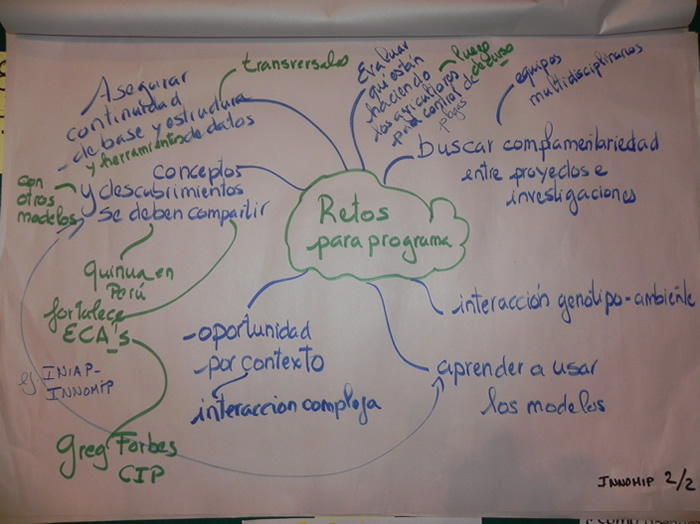 transversales
Asegurar
continuidad
de base y estructura
- y herramientas de datos
Evaluar
qué están
haciendo
los agricultores
para control de
plagas
luego
de curso
equipos
multidisciplinarios
buscar complementariedad
entre proyectos e
investigaciones
conceptos
y descubrimientos
se deben compartir
con
otros
modelos
Retos
para programa
quinua en
Perú
fortalece
ECA's
ej. INIAP-
INNOMIP
Greg Forbes
CIP
-oportunidad
-por contexto
interaccion compleja
interacción genótipo-ambiente
aprender a usar
los modelos
INNOMIP 2/2